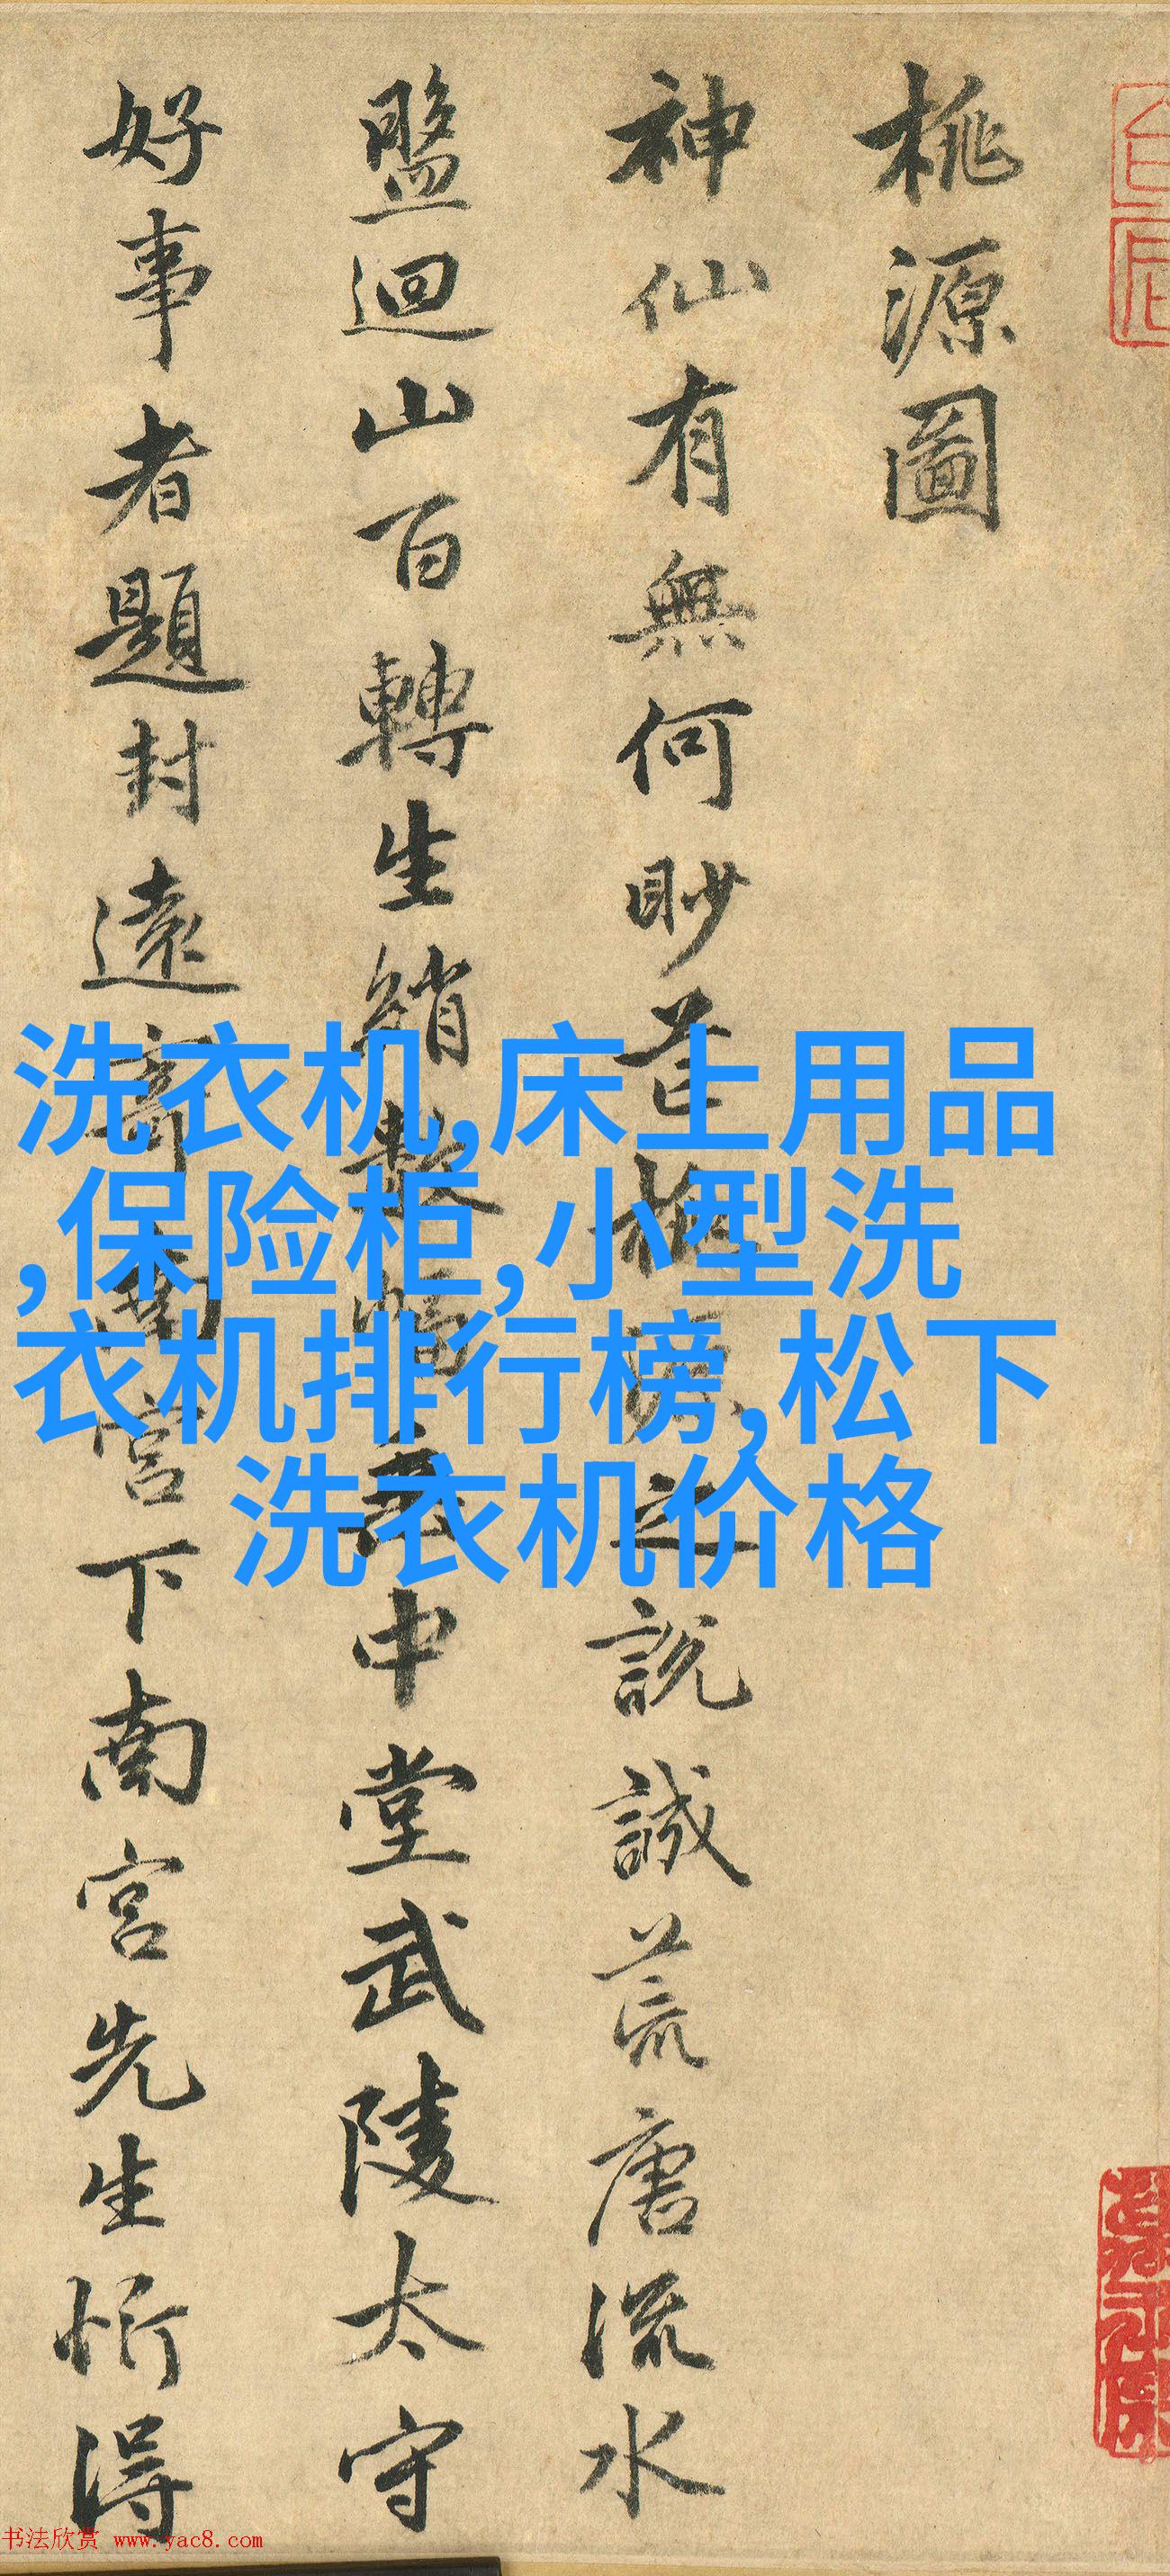 桃源圖
神仙有無何眇芒桃源之說誠荒唐流水
盤迴山百轉生綃數幅垂中堂武陵太守
好事者題封遠寄南宮下南宮先生忻得
洗衣机,床上用品
,保险柜,小型洗
衣机排行榜,松下
洗衣机价格
书法欣赏 www.yac8.com